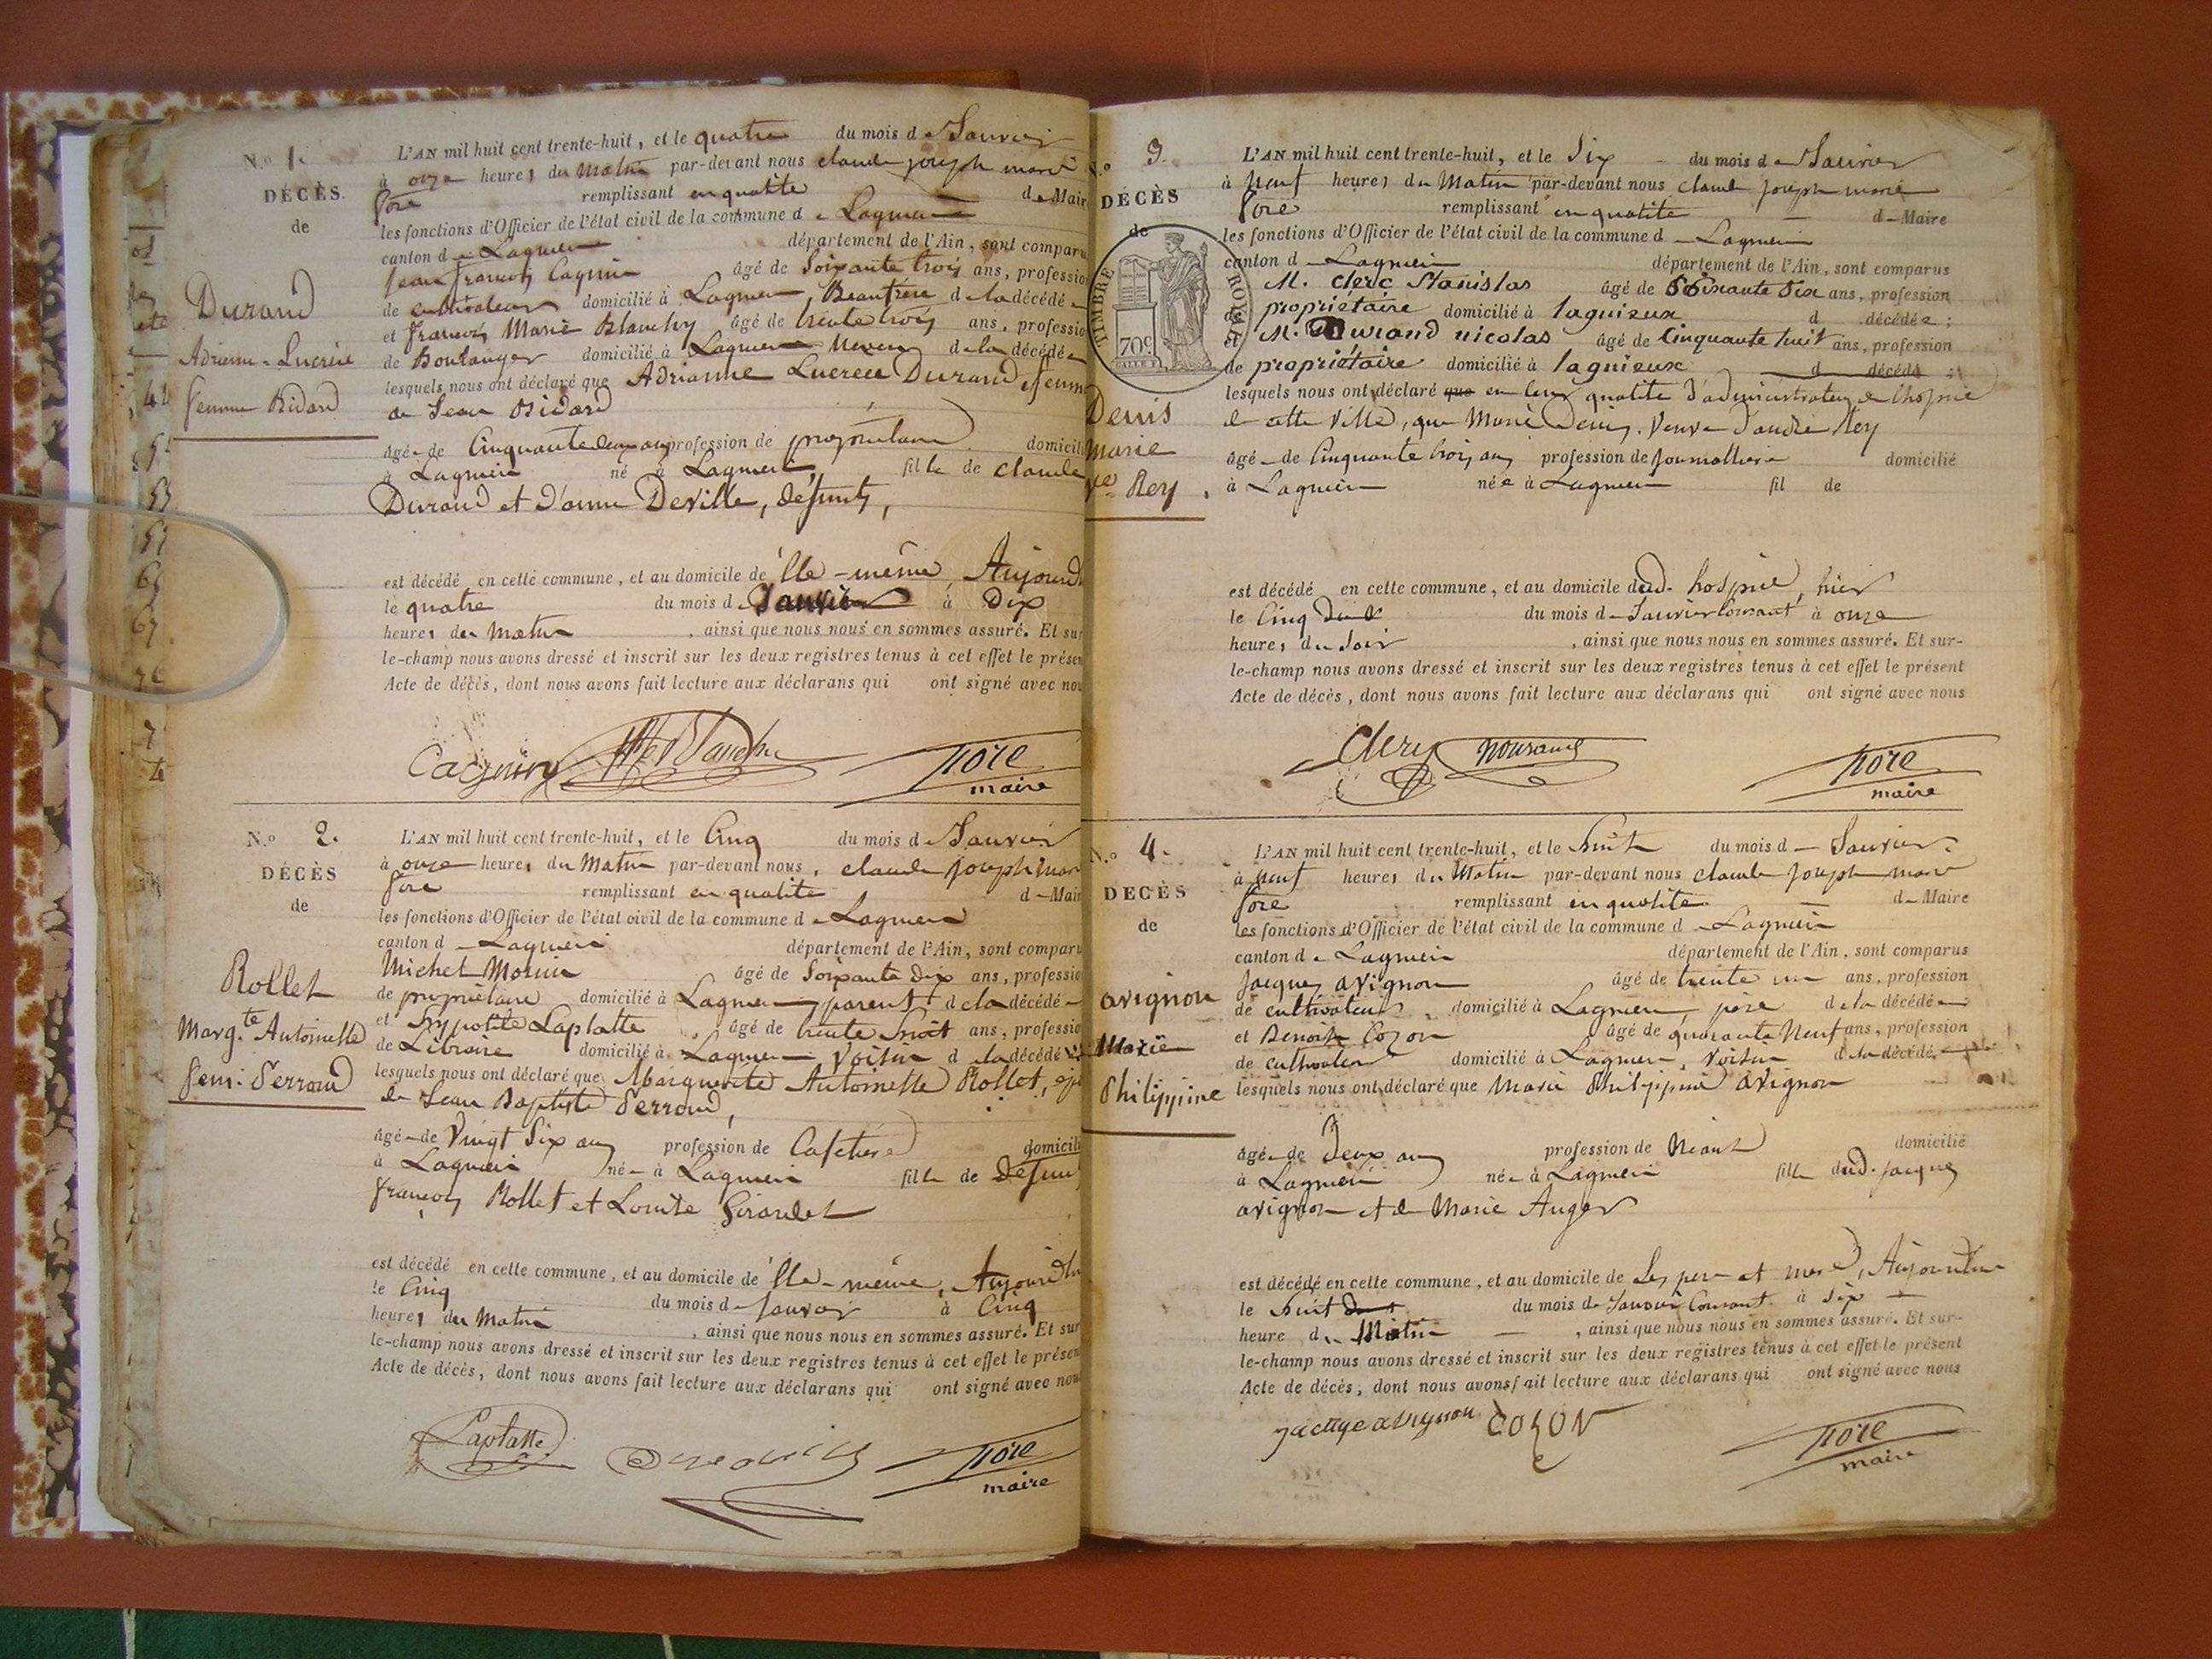 N.o 1.
DÉCÈS.
de
Durand
Adrienne-Lucrèce
femme Bidard
L'AN mil huit cent trente-huit, et le quatre du mois de Janvier
à onze heures du Matin par-devant nous claude joseph marie
fore remplissant en qualité de Mair
les fonctions d'Officier de l'état civil de la commune de Lagnieu
canton de Lagnieu département de l'Ain, sont comparu
Jean françois Cagnin âgé de Soixante trois ans, professio
de cultivateur domicilié à Lagnieu, Beaufrère de la décédée
et françois Marie Blanchy âgé de trente trois ans, professio
de Boulanger domicilié à Lagnieu Neveu de la décédée
lesquels nous ont déclaré que Adrianne Lucrece Durand, femm
de Jean Bidard
âgée de Cinquante deux ans profession de propriétaire domicili
à Lagnieu né à Lagnieu fille de claude
Durand et d'anne Deville, défunts,
est décédé en cette commune, et au domicile de Elle-même, Aujourd
le quatre du mois de Janvier à Dix
heures du matin, ainsi que nous nous en sommes assuré. Et sur
le-champ nous avons dressé et inscrit sur les deux registres tenus à cet effet le présen
Acte de décès, dont nous avons fait lecture aux déclarans qui ont signé avec nou
Cagnin Blanchy fore
maire
N.o 2.
DÉCÈS
de
Rollet
Marg.te Antoinette
fem: Serraud
L'AN mil huit cent trente-huit, et le Cinq du mois de Janvier
à onze heures du Matin par-devant nous, claude joseph mari
fore remplissant en qualité de Mair
les fonctions d'Officier de l'état civil de la commune de Lagnieu
canton de Lagnieu département de l'Ain, sont comparu
Michel Morin âgé de Soixante Dix ans, professio
de propriétaire domicilié à Lagnieu parent de la décédée
et hypolite Laplatte, âgé de trente huit ans, professio
de Libraire domicilié à Lagnieu Voisin de la décédée
lesquels nous ont déclaré que Marguerite Antoinette Rollet, ép
de Jean Baptiste Serraud,
âgée de Vingt Six ans profession de Cafetière domicili
à Lagnieu née à Lagnieu fille de Défunt
françois Rollet et Louise Girardet
est décédé en cette commune, et au domicile de Elle-même, Aujourdhu
le Cinq du mois de Janvier à Cinq
heures du Matin, ainsi que nous nous en sommes assuré. Et sur
le-champ nous avons dressé et inscrit sur les deux registres tenus à cet effet le présen
Acte de décès, dont nous avons fait lecture aux déclarans qui ont signé avec nou
Laplatte fore
maire
N.o 3.
DÉCÈS
de
TIMBRE ROYAL
70c
Denis
Marie
Ve. Rey
L'AN mil huit cent trente-huit, et le Six du mois de Janvier
à neuf heures du Matin par-devant nous claude joseph marie
fore remplissant en qualité de Maire
les fonctions d'Officier de l'état civil de la commune de Lagnieu
canton de Lagnieu département de l'Ain, sont comparus
M. Clerc Stanislas âgé de Soixante Dix ans, profession
de propriétaire domicilié à lagnieux d décédée;
et M. Durand nicolas âgé de Cinquante huit ans, profession
de propriétaire domicilié à lagnieux d décédé;
lesquels nous ont déclaré que en leur qualité d'administrateurs de l'hospice
de cette Ville, que Marie Denis, Veuve d'andré Rey
âgée de Cinquante trois ans profession de journallière domicilié
à Lagnieu née à Lagnieu fil de
est décédé en cette commune, et au domicile dud. hospice, hier
le Cinq du mois de Janvier Courant à onze
heures du Soir, ainsi que nous nous en sommes assuré. Et sur-
le-champ nous avons dressé et inscrit sur les deux registres tenus à cet effet le présent
Acte de décès, dont nous avons fait lecture aux déclarans qui ont signé avec nous
Clerc fore
maire
N.o 4.
DÉCÈS
de
avignon
Marie
Philippine
L'AN mil huit cent trente-huit, et le huit du mois de Janvier
à neuf heures du Matin par-devant nous claude joseph marie
fore remplissant en qualité de Maire
les fonctions d'Officier de l'état civil de la commune de Lagnieu
canton de Lagnieu département de l'Ain, sont comparus
Jacques avignon âgé de trente un ans, profession
de cultivateur, domicilié à Lagnieu, père de la décédée
et Benoit Cozon âgé de quarante Neuf ans, profession
de cultivateur domicilié à Lagnieu, voisin de la décédée
lesquels nous ont déclaré que Marie Philippine avignon
âgée de Deux ans profession de Néant domicilié
à Lagnieu née à Lagnieu fille dud. jacques
avignon et de Marie Auger
est décédé en cette commune, et au domicile de Ses père et mère, Aujourdhui
le huit du mois de Janvier Courant à Six
heure du Matin, ainsi que nous nous en sommes assuré. Et sur-
le-champ nous avons dressé et inscrit sur les deux registres tenus à cet effet le présent
Acte de décès, dont nous avons fait lecture aux déclarans qui ont signé avec nous
jacque avignon COZON fore
maire